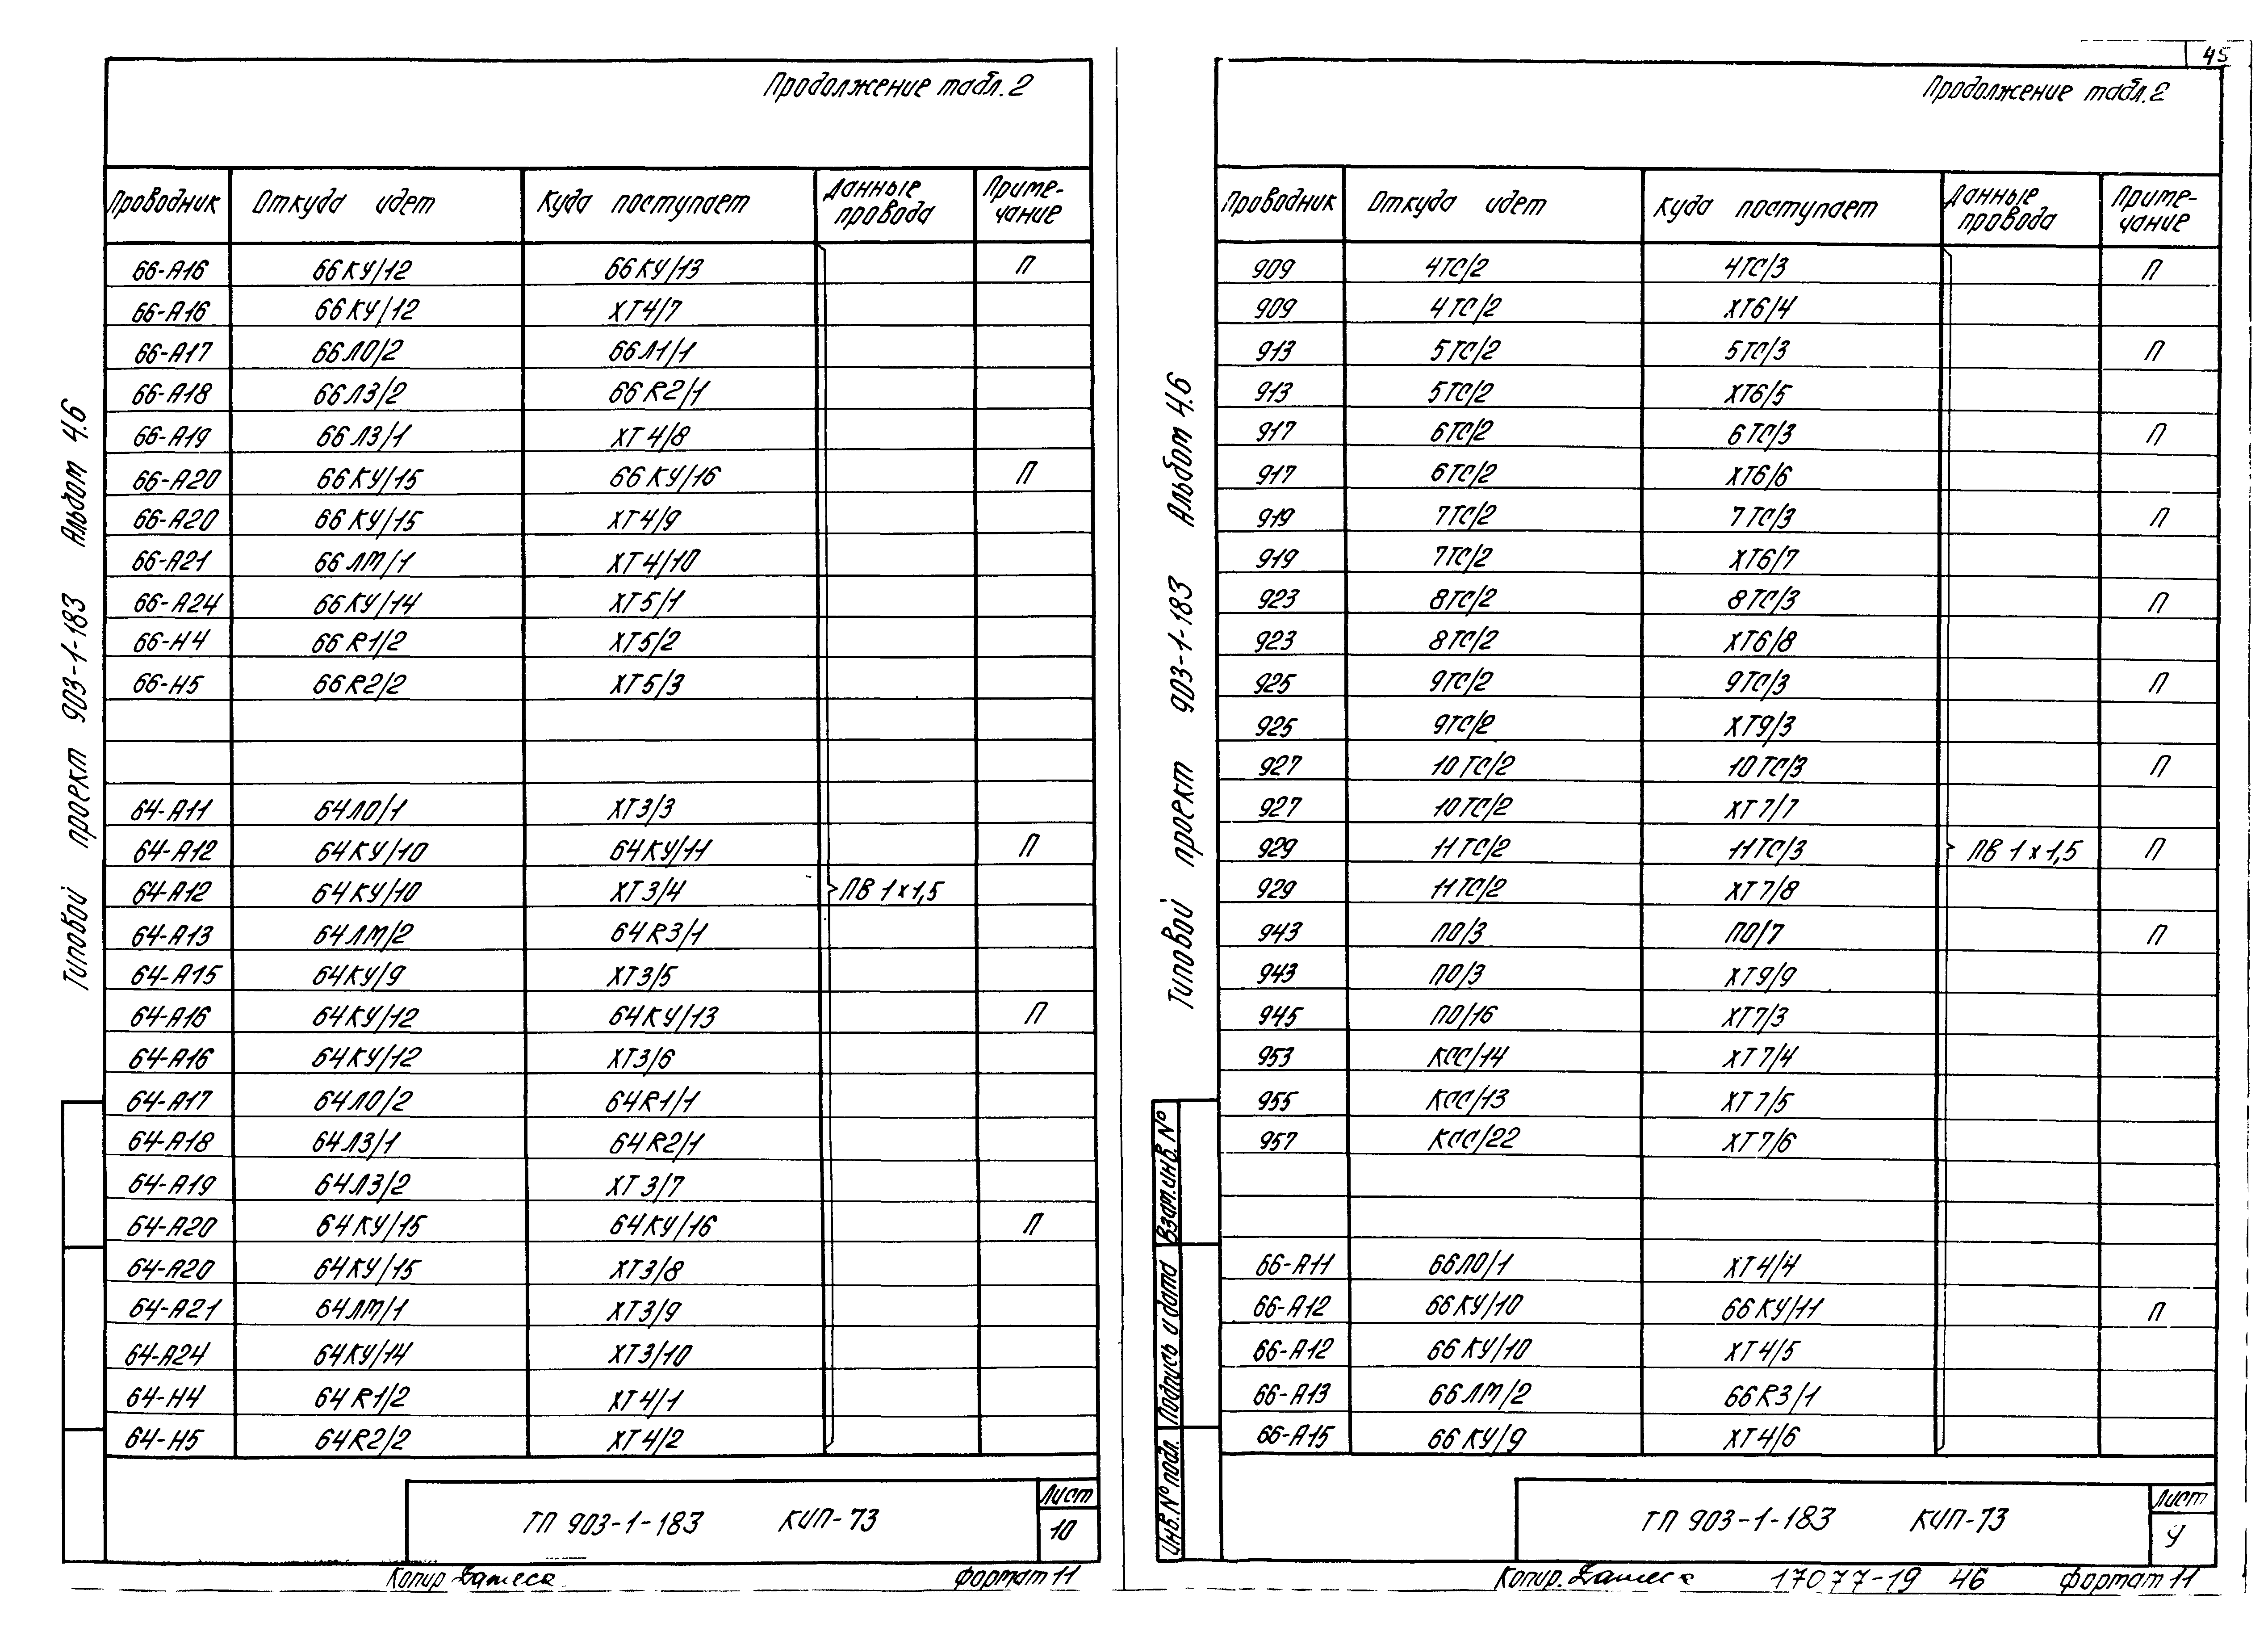 Продолжение табл.2
Проводник Откуда идет Куда поступает Данные провода Приме-чание
66-А16 66КУ/12 66КУ/13 П
66-А16 66КУ/12 ХТ4/7
66-А17 66ЛО/2 66Л1/1
66-А18 66ЛЗ/2 66R2/1
66-А19 66ЛЗ/1 ХТ4/8
66-А20 66КУ/15 66КУ/16 П
66-А20 66КУ/15 ХТ4/9
66-А21 66ЛМ/1 ХТ4/10
66-А24 66КУ/14 ХТ5/1
66-Н4 66R1/2 ХТ5/2
66-Н5 66R2/2 ХТ5/3
64-А11 64ЛО/1 ХТ3/3
64-А12 64КУ/10 64КУ/11 П
64-А12 64КУ/10 ХТ3/4 ПВ 1х1,5
64-А13 64ЛМ/2 64R3/1
64-А15 64КУ/9 ХТ3/5
64-А16 64КУ/12 64КУ/13 П
64-А16 64КУ/12 ХТ3/6
64-А17 64ЛО/2 64R1/1
64-А18 64ЛЗ/1 64R2/1
64-А19 64ЛЗ/2 ХТ3/7
64-А20 64КУ/15 64КУ/16 П
64-А20 64КУ/15 ХТ3/8
64-А21 64ЛМ/1 ХТ3/9
64-А24 64КУ/14 ХТ3/10
64-Н4 64R1/2 ХТ4/1
64-Н5 64R2/2 ХТ4/2
Типовой проект 903-1-183 Альбом 4.6
ТП 903-1-183 КИП-73
Лист
10
Копир.
Формат 11
45
Продолжение табл.2
Проводник Откуда идет Куда поступает Данные провода Приме-чание
909 4ТС/2 4ТС/3 П
909 4ТС/2 ХТ6/4
913 5ТС/2 5ТС/3 П
913 5ТС/2 ХТ6/5
917 6ТС/2 6ТС/3 П
917 6ТС/2 ХТ6/6
919 7ТС/2 7ТС/3 П
919 7ТС/2 ХТ6/7
923 8ТС/2 8ТС/3 П
923 8ТС/2 ХТ6/8
925 9ТС/2 9ТС/3 П
925 9ТС/2 ХТ9/3
927 10ТС/2 10ТС/3 П
927 10ТС/2 ХТ7/7
929 11ТС/2 11ТС/3 ПВ 1х1,5 П
929 11ТС/2 ХТ7/8
943 ПО/3 ПО/7 П
943 ПО/3 ХТ9/9
945 ПО/16 ХТ7/3
953 КСС/14 ХТ7/4
955 КСС/13 ХТ7/5
957 КСС/22 ХТ7/6
66-А11 66ЛО/1 ХТ4/4
66-А12 66КУ/10 66КУ/11 П
66-А12 66КУ/10 ХТ4/5
66-А13 66ЛМ/2 66R3/1
66-А15 66КУ/9 ХТ4/6
Типовой проект 903-1-183 Альбом 4.6
Инв.№ подл. Подпись и дата Взам.инв.№
ТП 903-1-183 КИП-73
Лист
Копир.
17077-19 46
Формат 11